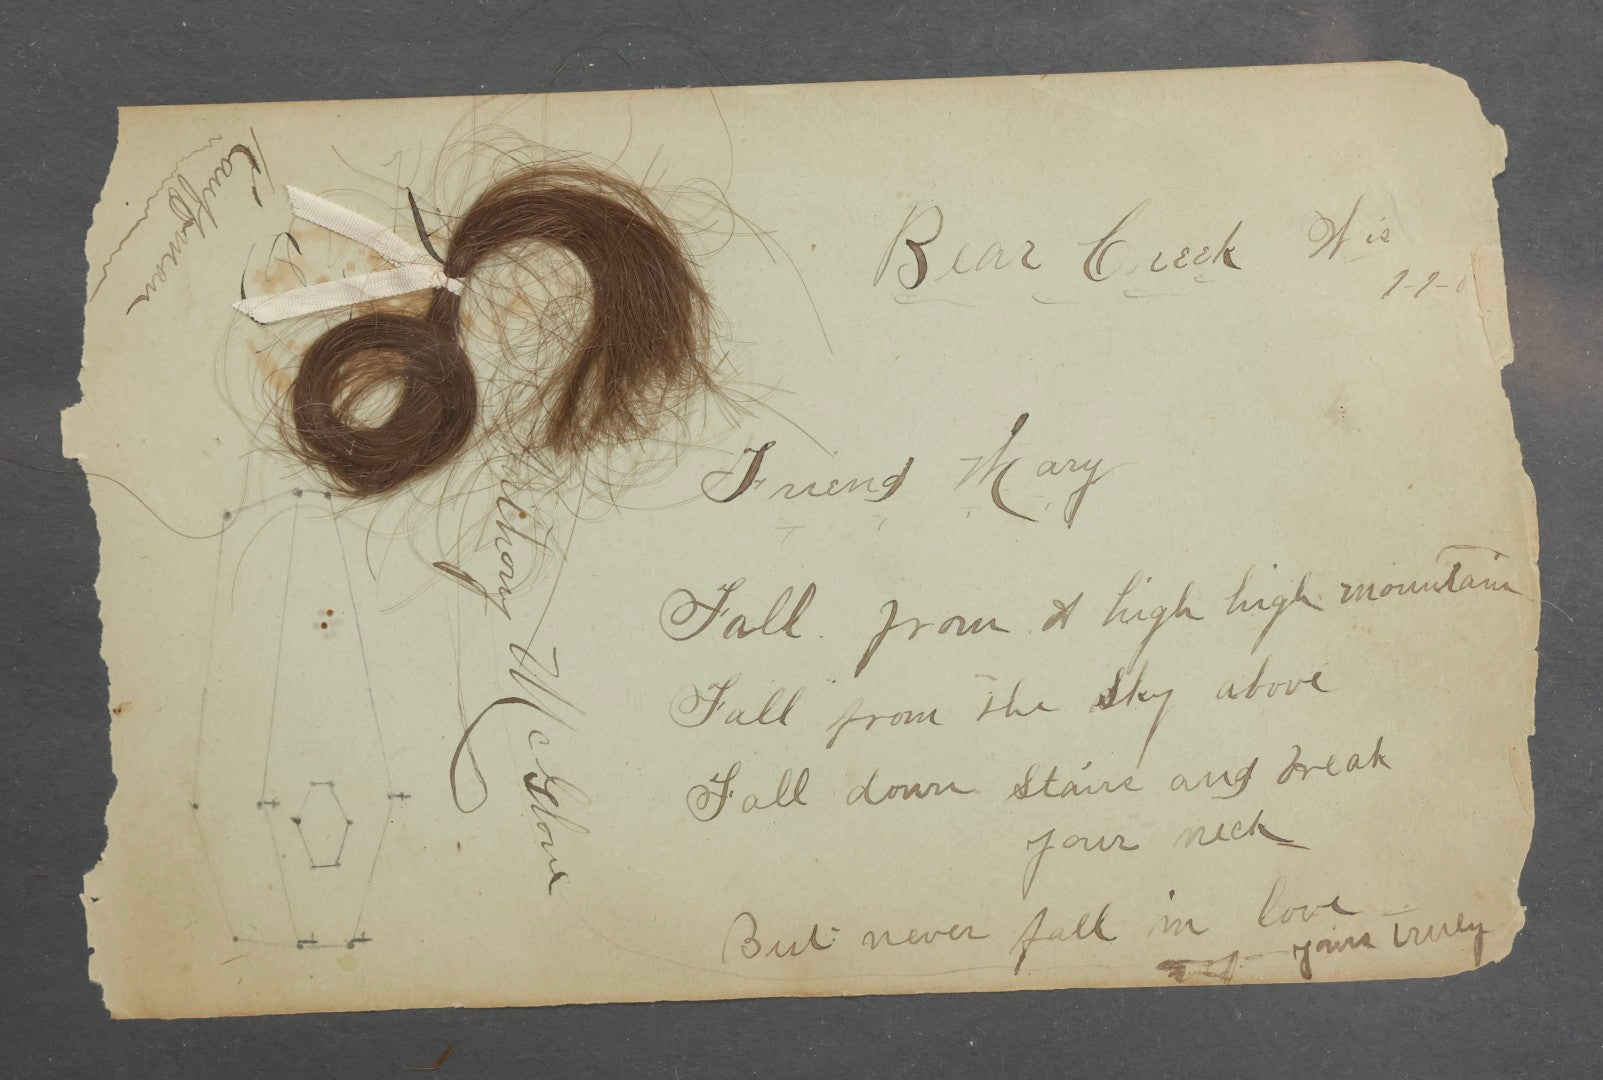 Bear Creek Wis
Friend Mary
Fall from A high high mountain
Fall from the sky above
Fall down stairs and break
your neck
But never fall in love
yours truly
McGlone